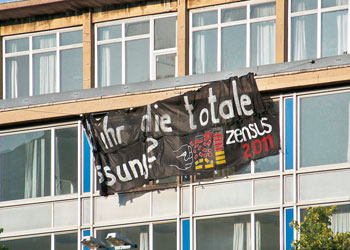 ihr die totale
ssung?
ZENSUS
2011